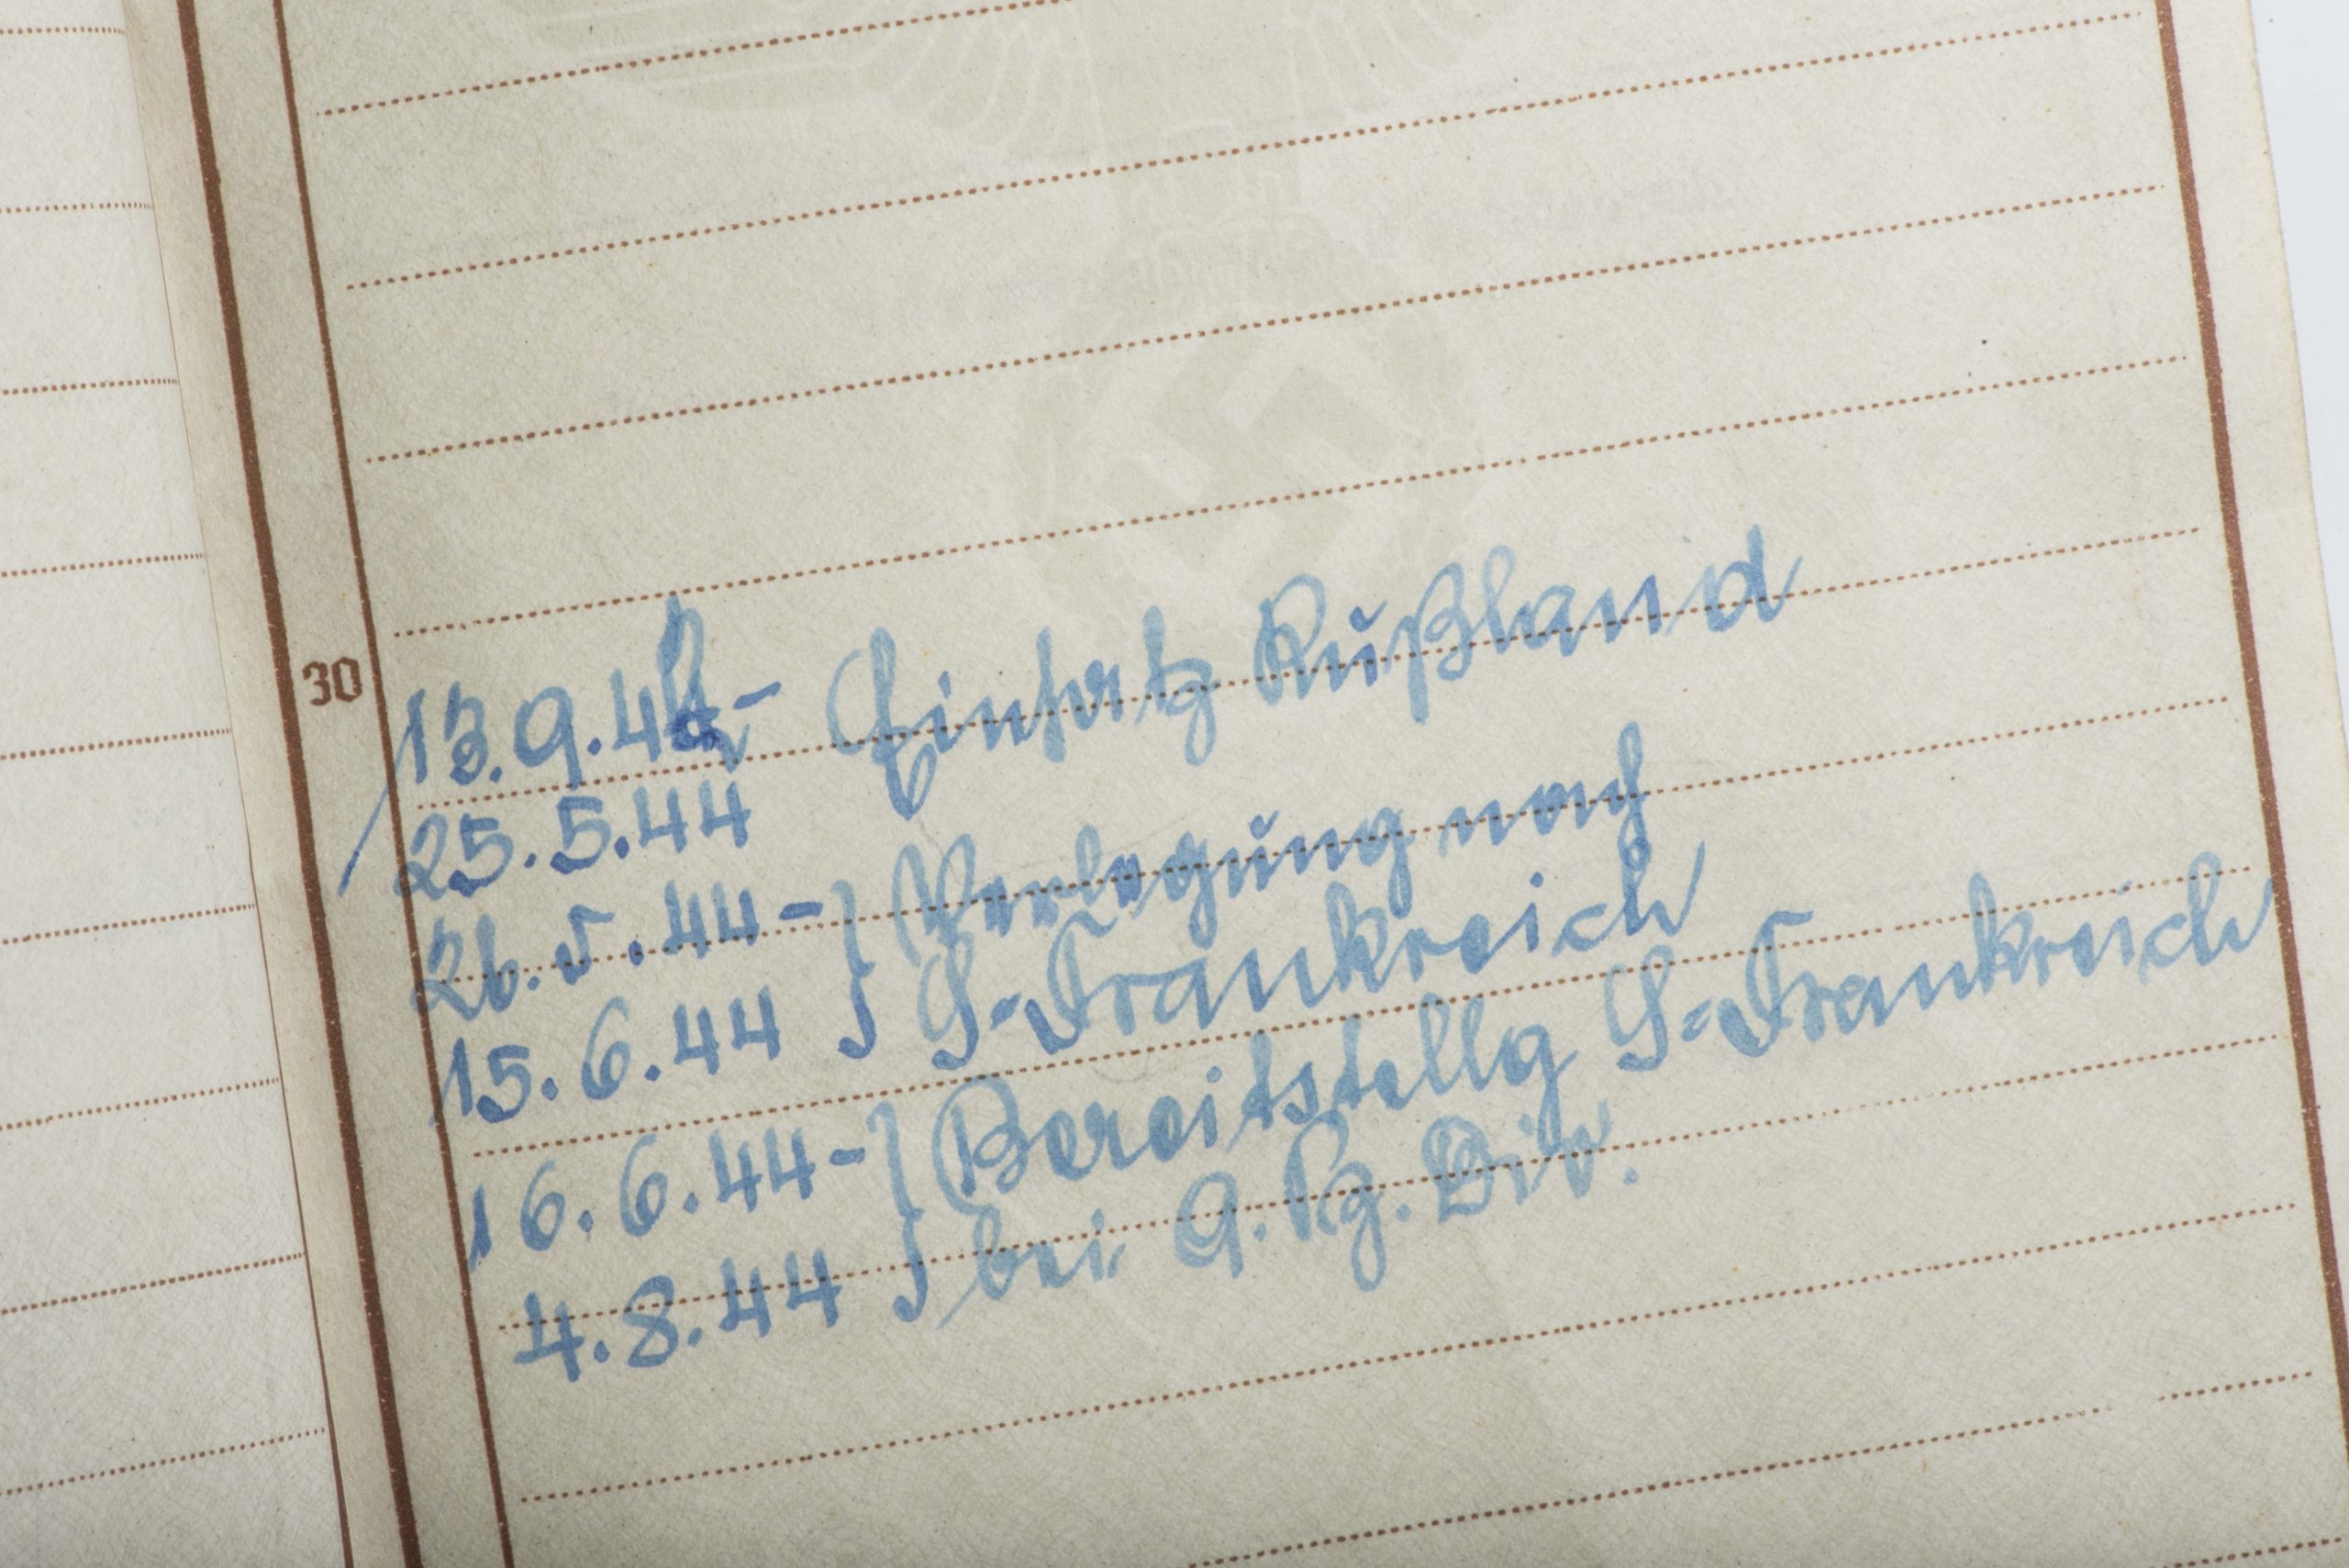 30
13.9.42- Einsatz Rußland
25.5.44
26.5.44- } Verlegung nach
15.6.44 } S-Frankreich
16.6.44- } Bereitstellg S-Frankreich
4.8.44 } bei 9. Pz. Div.